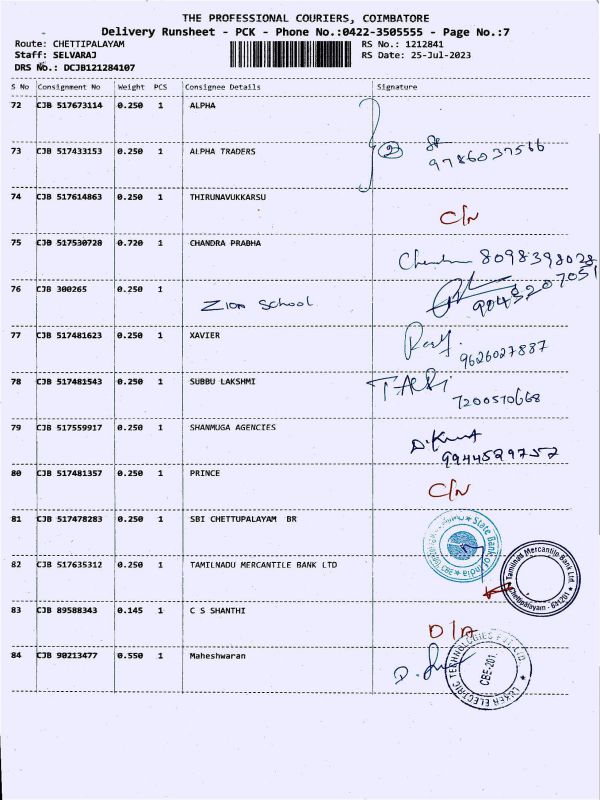 THE PROFESSIONAL COURIERS, COIMBATORE
Delivery Runsheet - PCK - Phone No.:0422-3505555 - Page No.:7
Route: CHETTIPALAYAM RS No.: 1212841
Staff: SELVARAJ RS Date: 25-Jul-2023
DRS No.: DCJB121284107
S No Consignment No Weight PCS Consignee Details Signature
72 CJB 517673114 0.250 1 ALPHA
73 CJB 517433153 0.250 1 ALPHA TRADERS 2 9786037566
74 CJB 517614863 0.250 1 THIRUNAVUKKARSU
C/N
75 CJB 517530728 0.720 1 CHANDRA PRABHA
8098398028
76 CJB 300265 0.250 1 Zion School 9043207051
77 CJB 517481623 0.250 1 XAVIER
9626027887
78 CJB 517481543 0.250 1 SUBBU LAKSHMI
7200510668
79 CJB 517559917 0.250 1 SHANMUGA AGENCIES
9944529757
80 CJB 517481357 0.250 1 PRINCE
C/N
81 CJB 517478283 0.250 1 SBI CHETTUPALAYAM BR
State Bank of India
82 CJB 517635312 0.250 1 TAMILNADU MERCANTILE BANK LTD
Tamilnad Mercantile Bank Ltd
Chettipalayam - 641201
83 CJB 89588343 0.145 1 C S SHANTHI
D/A
84 CJB 90213477 0.550 1 Maheshwaran
LUKER ELECTRIC TECHNOLOGIES PVT. LTD.
CBE-201.